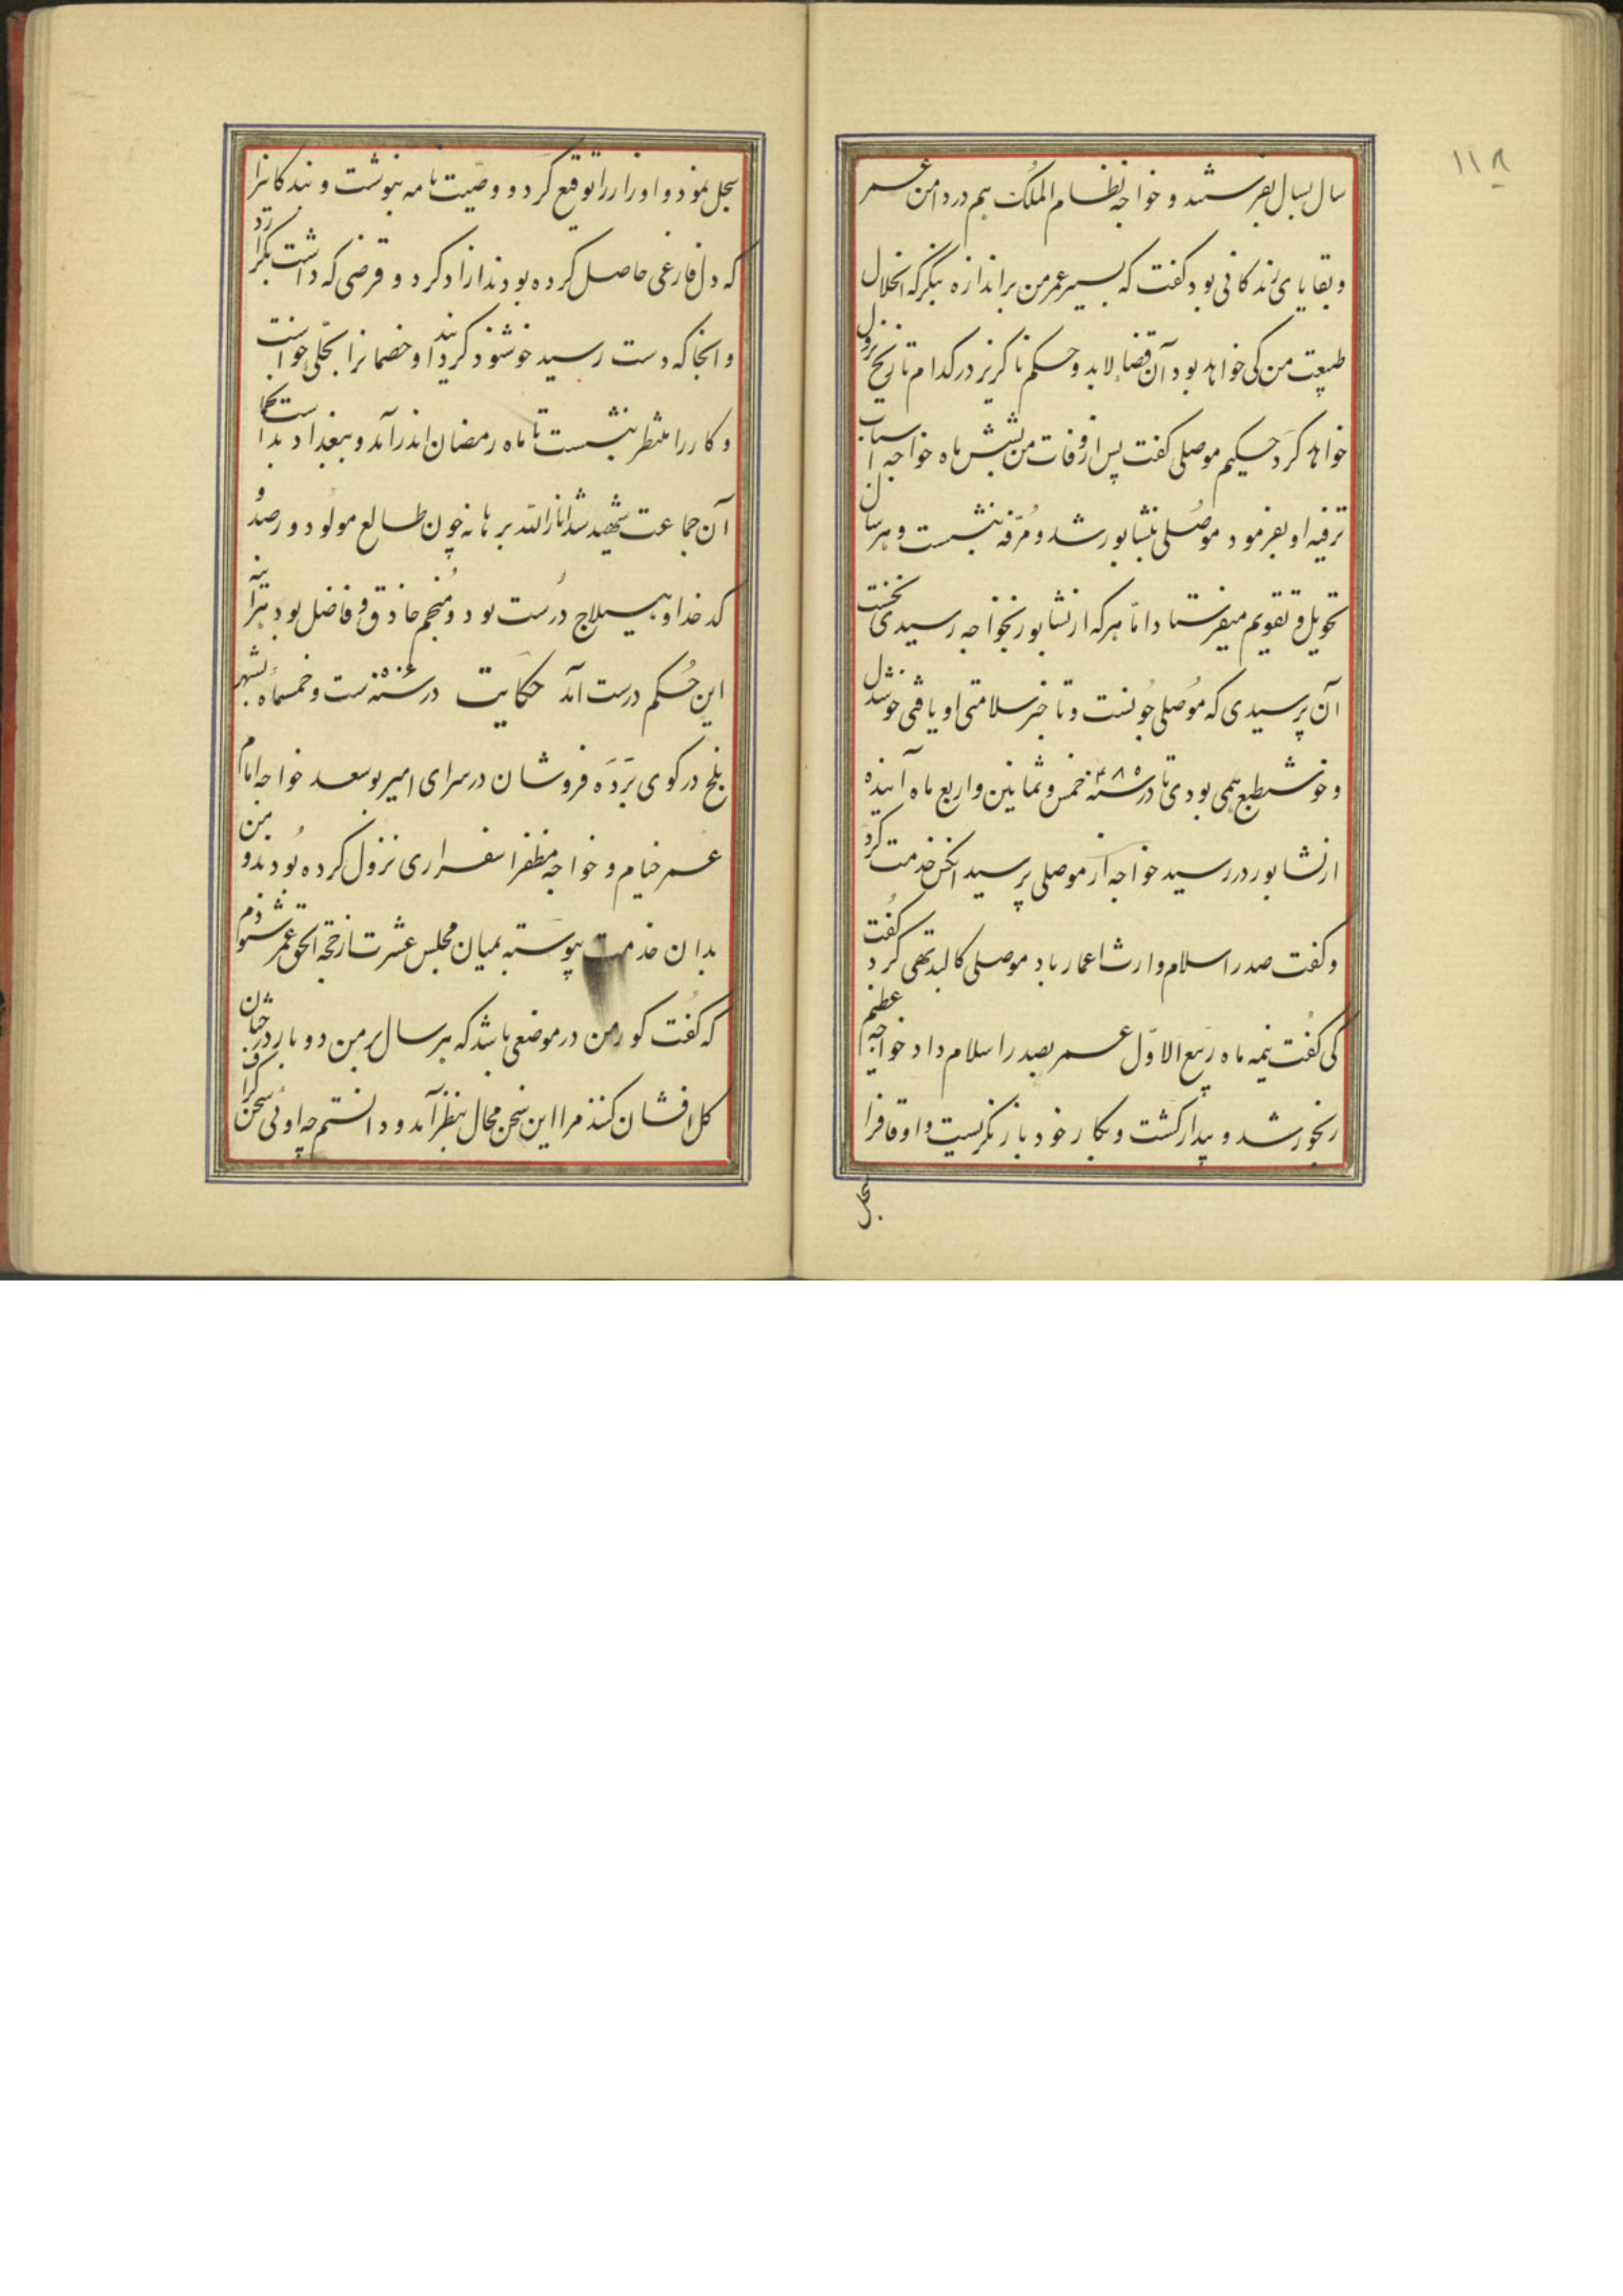 ١١٨
سال بسال بفرستد و خواجه نظام الملک هم در دامن عمر
و بقایای زندکانی بود کفت که بسیر عمر من براندازه بنگر که انحلال
طبیعت من کی خواهد بود آن قضاء لابد و حکم ناکزیر در کدام تاریخ نزول
خواهد کرد حکیم موصلی کفت پس از وفات من بشش ماه خواجه اسباب
ترفیه او بفرمود موصلی بنشابور شد و مُرّفه بنشست و هر سال
تحویل و تقویم میفرستاد امّا هر که از نشابور بخواجه رسیدی نخست
آن پرسیدی که مُوصلی چونست و تا خبر سلامتی او یافتی خوشدل
و خوش طبع همی بودی تا در سنه ۴۸۵ خمس و ثمانین و اربع ماه آینده
از نشابور در رسید خواجه از موصلی پرسید آنکس خدمت کرد
و کفت صدر اسلام وارث اعمار باد موصلی کالبد تهی کرد کفت
کی کفت نیمه ماه ربیع الاوّل عمر بصدر اسلام داد خواجه عظیم
رنجور شد و بیدار کشت و بکار خود باز نکریست و اوقافرا
سجل
سجل نمود و اوراررا توقیع کرد و وصیّت نامه بنوشت و بندکانیرا
که دل فارغی حاصل کرده بودند ازاد کرد و قرضی که داشت بکزارد
و انجا که دست رسید خوشنود کردانید و خصمانرا بحلی خواست
و کاررا منتظر بنشست تا ماه رمضان اندر آمد و ببغداد بدست
آن جماعت شهید شد انارالله برهانه چون طالع مولود و رصد و
کدخدا و هیلاج درست بود و منجم حاذق و فاضل بود هرآینه
این حُکم درست آمد حکایت در سنه ۵۰۶ ست و خمسمائه بشهر
بلخ در کوی بَرَدَه فروشان در سرای امیر بوسعد خواجه امام
عمر خیام و خواجه مظفر اسفزاری نزول کرده بُودند و من
بدان خدمت پیوسته بمیان مجلس عشرت از حجّه الحق عمر شنودم
که کُفت کور من در موضعی باشد که هر سال بر من دو بار درختان
کل افشان کنند مرا این سخن محال بنظر آمد و دانستم چه اوئی سخن کزاف